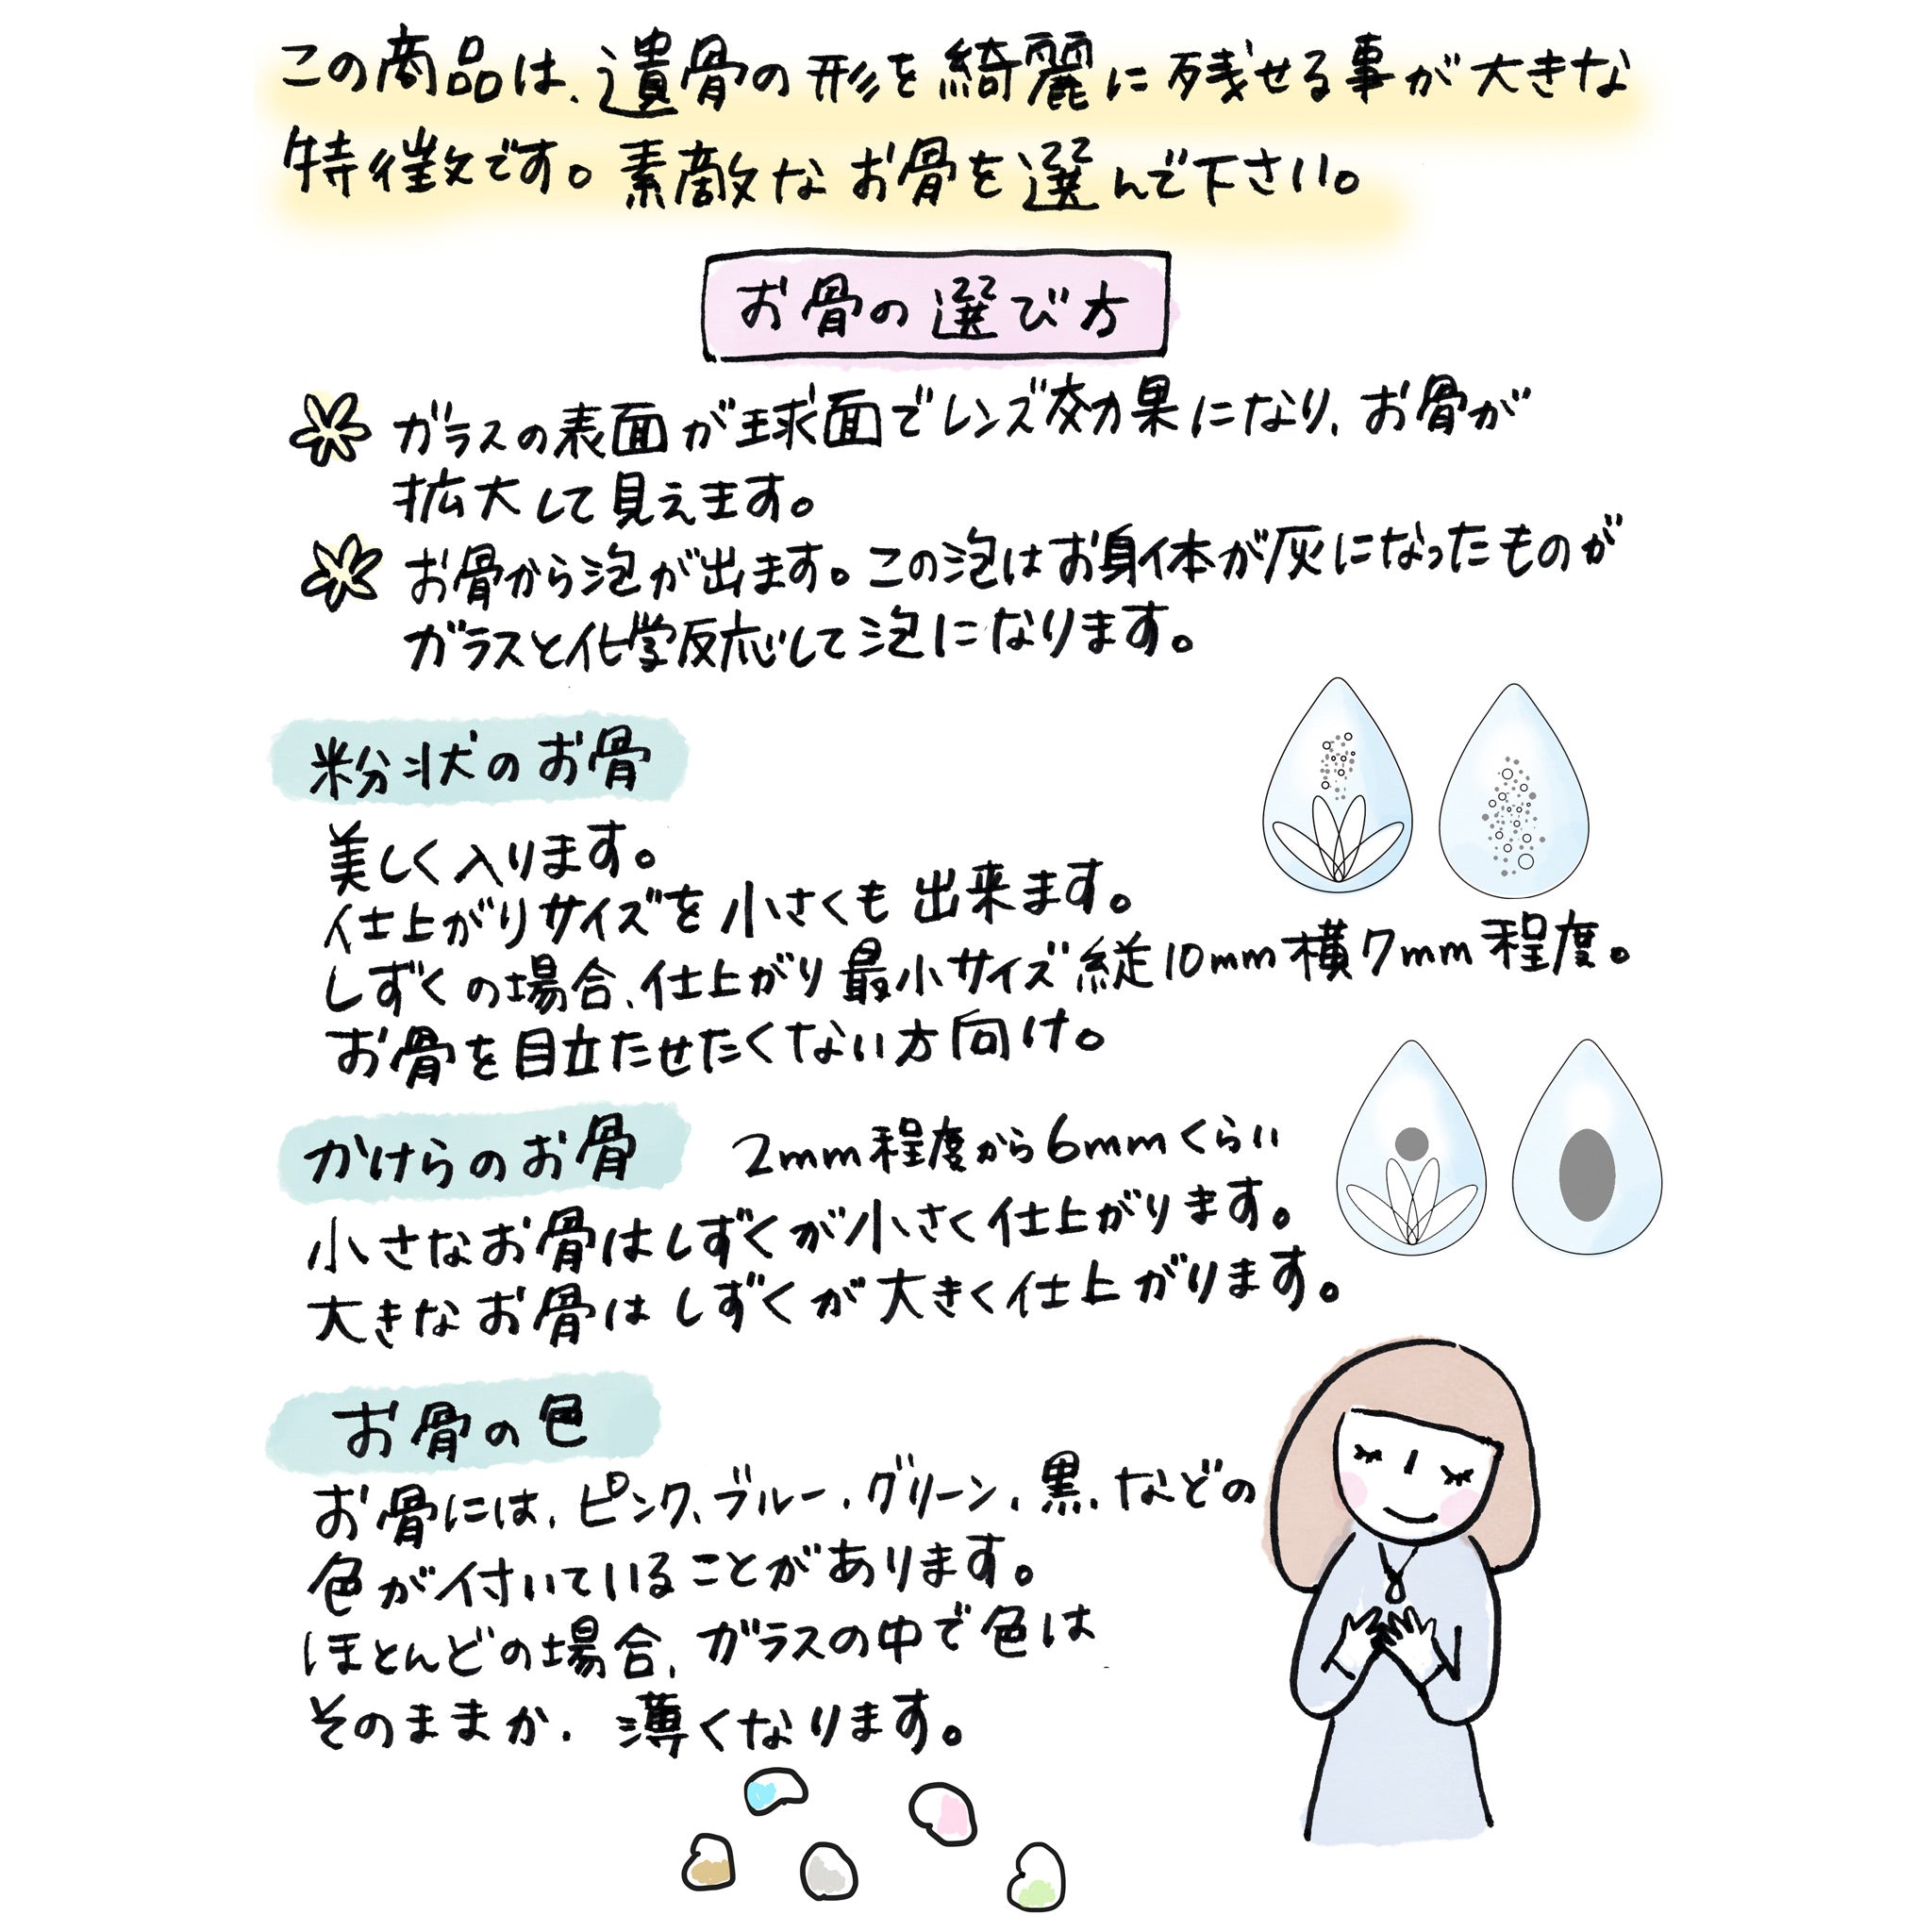 この商品は、遺骨の形を綺麗に残せる事が大きな
特徴です。素敵なお骨を選んで下さい。
お骨の選び方
ガラスの表面が球面でレンズ効果になり、お骨が
拡大して見えます。
お骨から泡が出ます。この泡はお身体が灰になったものが
ガラスと化学反応して泡になります。
粉状のお骨
美しく入ります。
仕上がりサイズを小さくも出来ます。
しずくの場合、仕上がり最小サイズ縦10mm横7mm程度。
お骨を目立たせたくない方向け。
かけらのお骨 2mm程度から6mmくらい
小さなお骨はしずくが小さく仕上がります。
大きなお骨はしずくが大きく仕上がります。
お骨の色
お骨には、ピンク、ブルー、グリーン、黒、などの
色が付いていることがあります。
ほとんどの場合、ガラスの中で色は
そのままか、薄くなります。